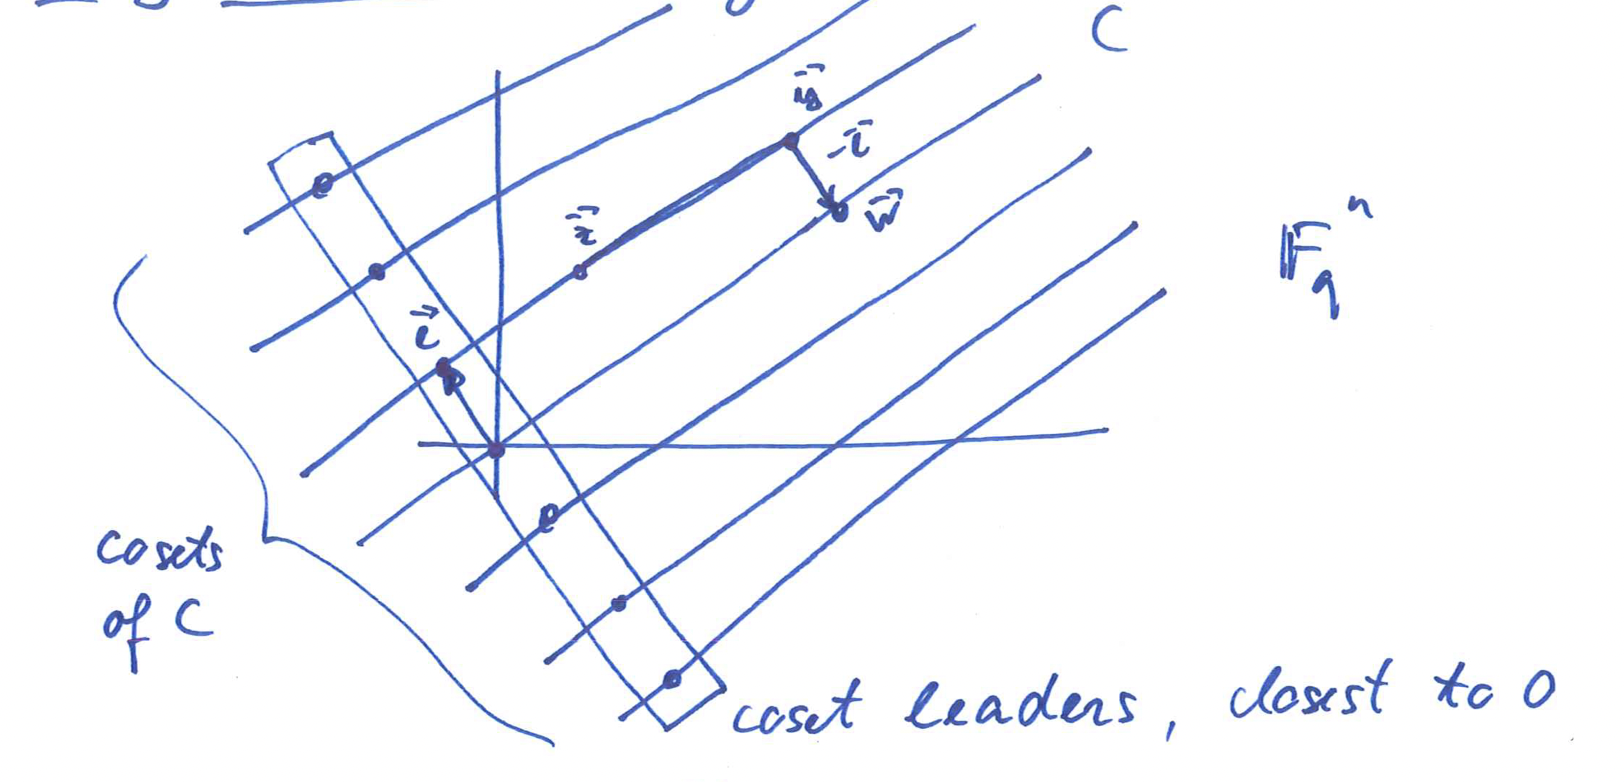 C
$\vec{y}$
$-\vec{e}$
$\vec{z}$
$\vec{w}$
$\mathbb{F}_q^n$
$\vec{e}$
cosets
of C
coset leaders, closest to 0